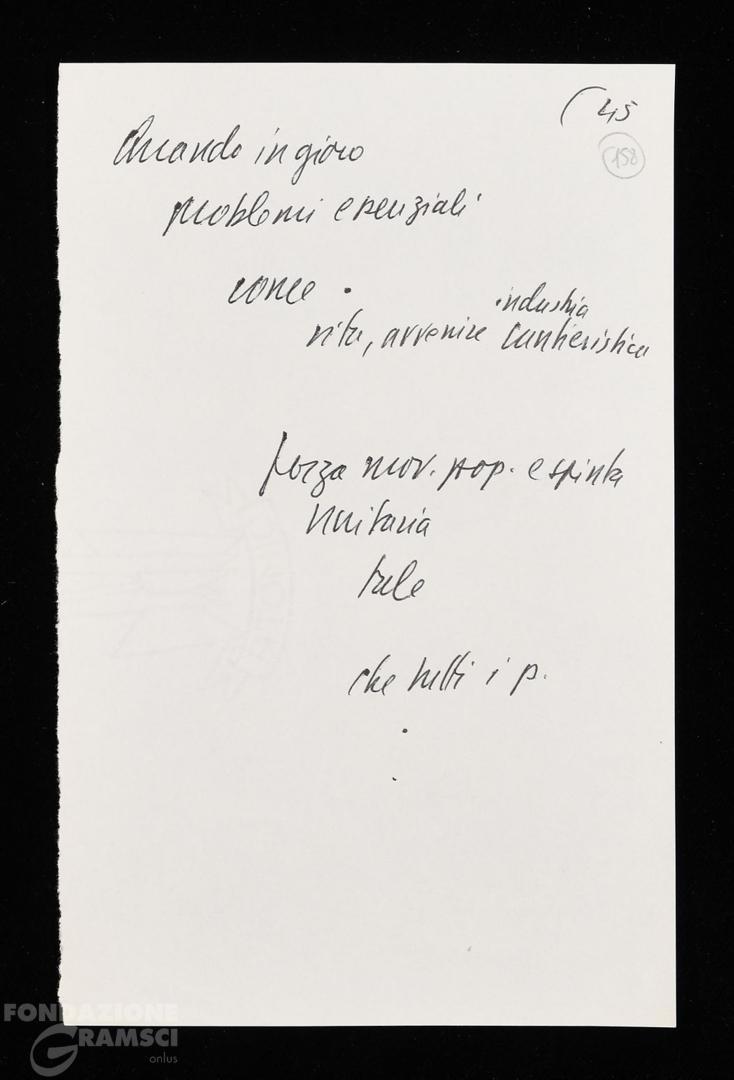 ( 45
158
Quando in gioco
problemi essenziali
come .
industria
vita, avvenire cantieristica
forza mov. pop. e spinta
unitaria
tale
che tutti i p.
FONDAZIONE
GRAMSCI
onlus